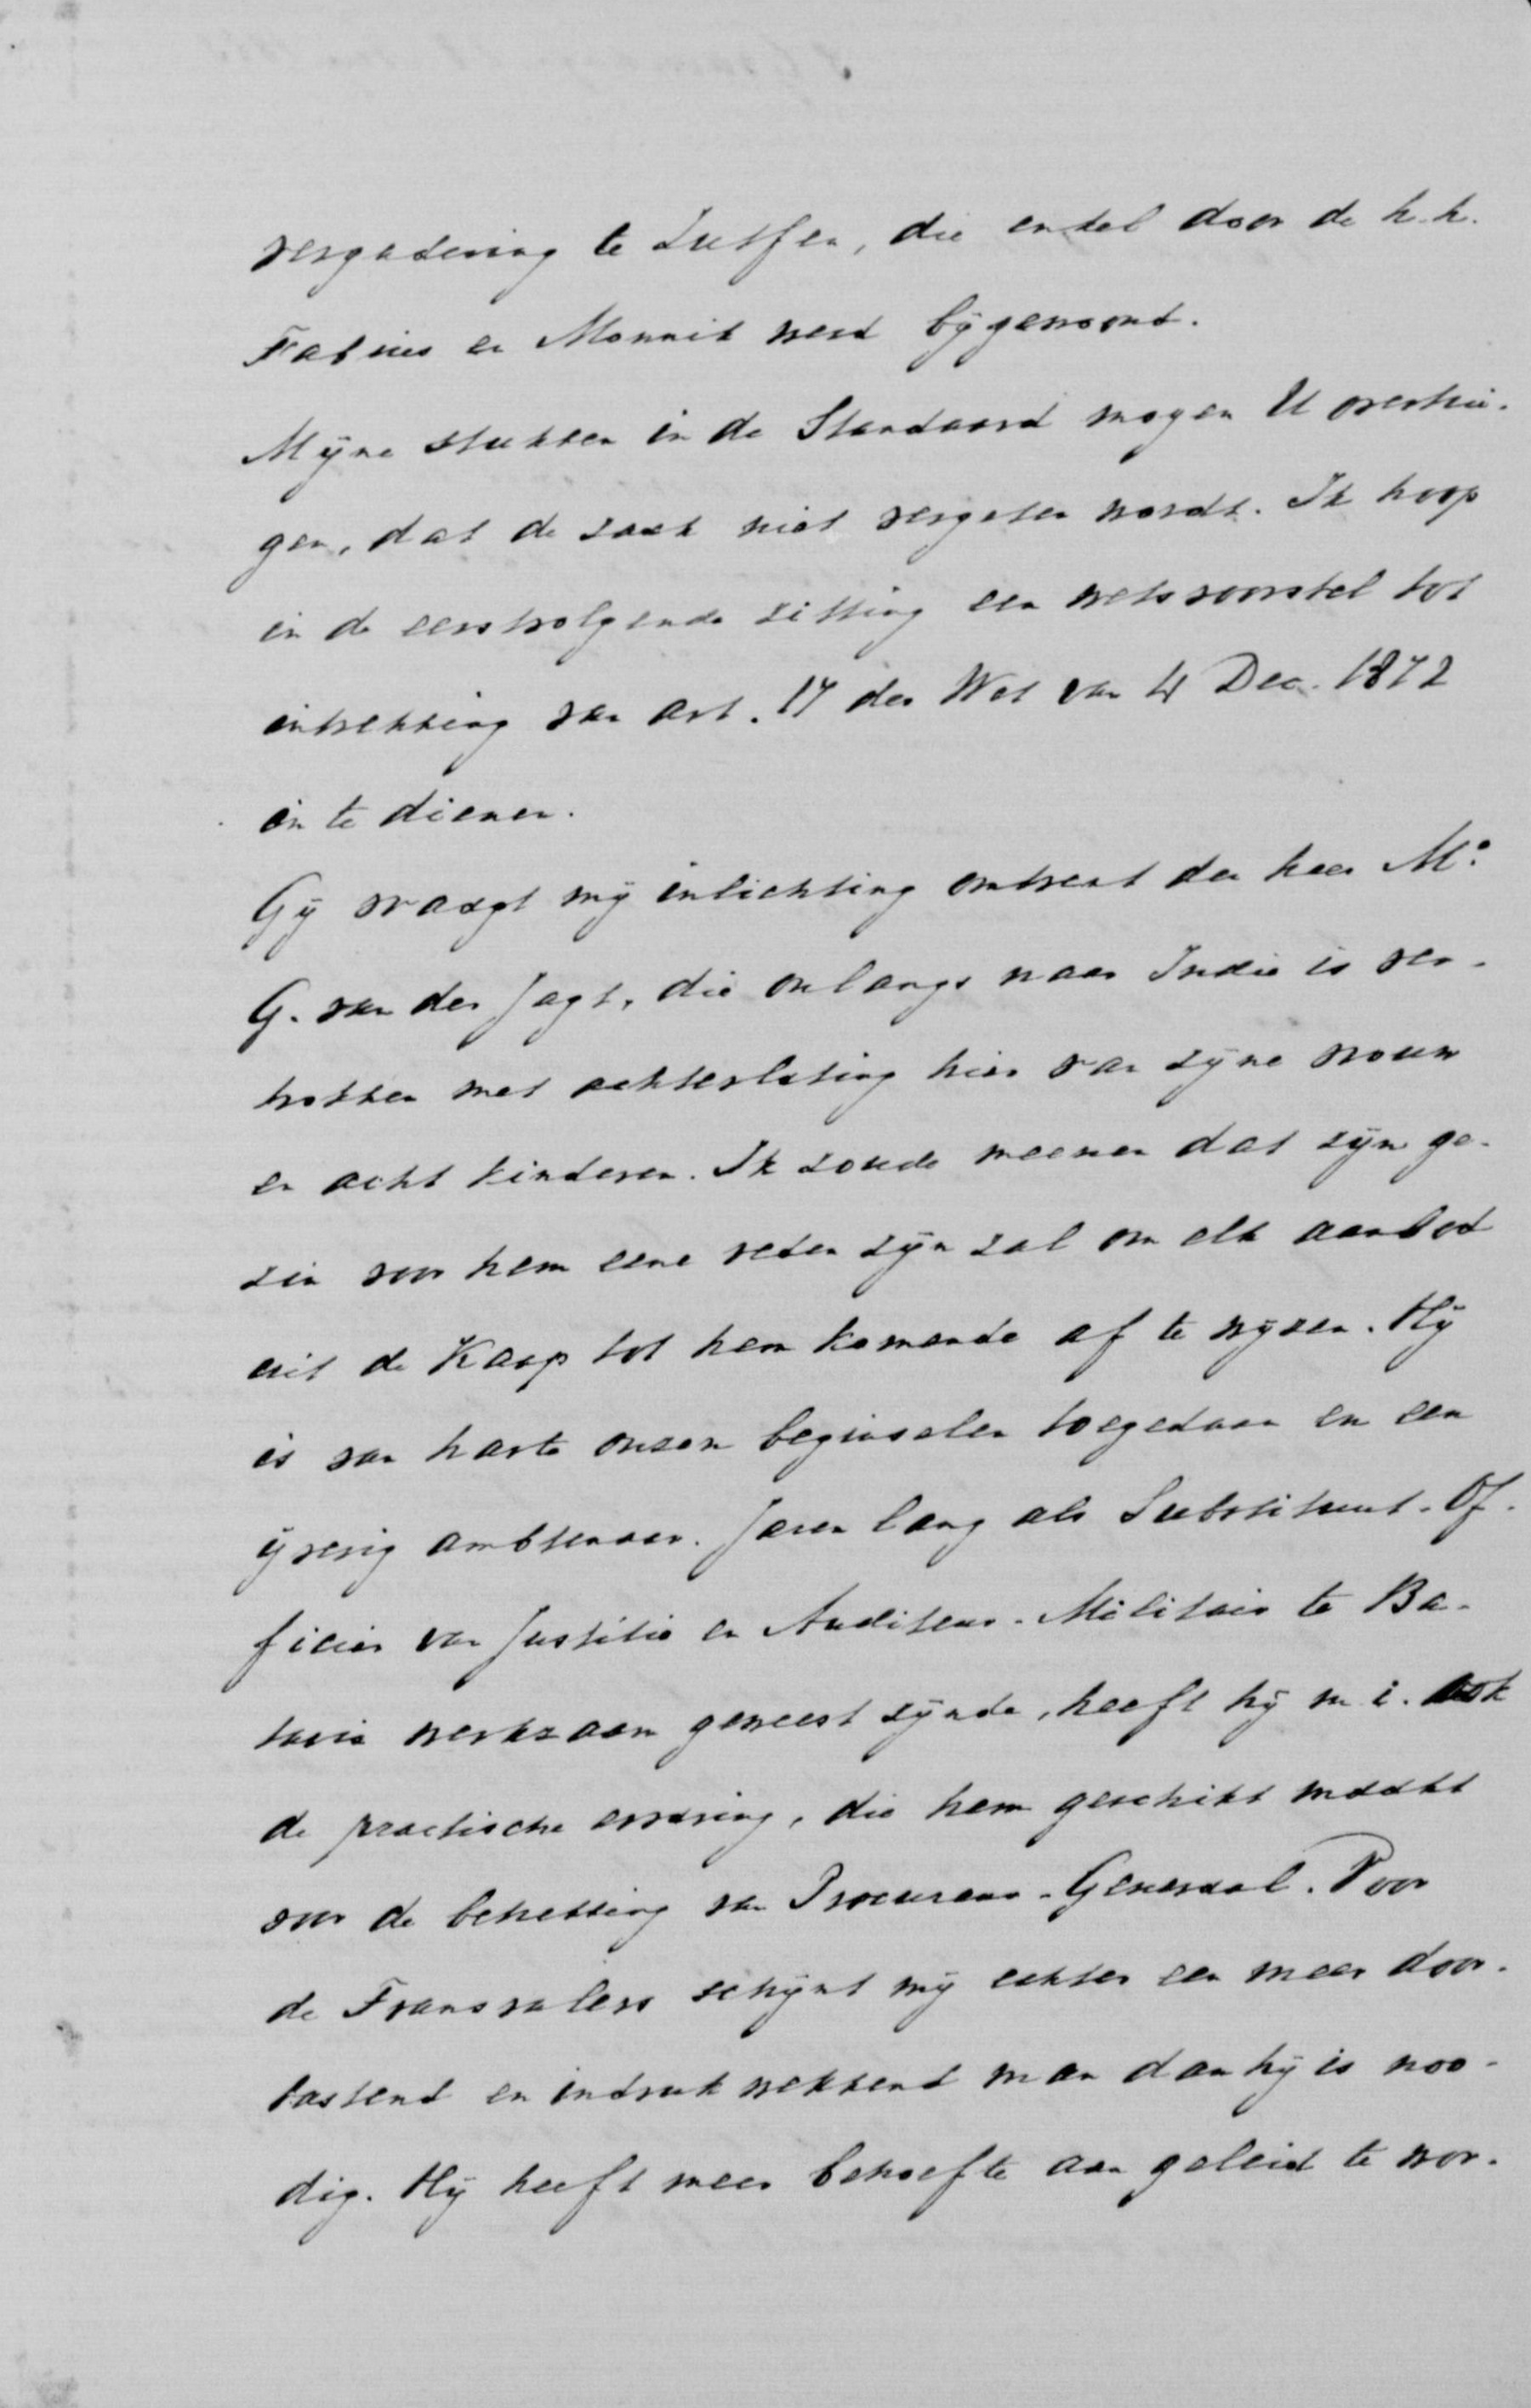 vergadering te Zutfen, die enkel door de h.h.
Fabius en Monnik werd bijgewoond.
Mijne stukken in de Standaard mogen U overtui-
gen, dat de zaak niet vergeten wordt. Ik hoop
in de eerstvolgende zitting een wetsvoorstel tot
intrekking van art. 17 der Wet van 4 Dec. 1872
in te dienen.
Gij vraagt mij inlichting omtrent den heer Mr.
G. van der Jagt, die onlangs naar Indie is ver-
trokken met achterlating hier van zijne vrouw
en acht kinderen. Ik zoude meenen dat zijn ge-
zin voor hem eene reden zijn zal om elk aanbod
uit de Kaap tot hem komende af te wijzen. Hij
is van harte onzen beginselen toegedaan en een
ijverig ambtenaar. Jaren lang als Substituut-Of-
ficier van Justitie en Auditeur-Militair te Ba-
tavia werkzaam geweest zijnde, heeft hij m.i. ook
de practische ervaring, die hem geschikt maakt
voor de betrekking van Procureur-Generaal. Voor
de Transvalers schijnt mij echter een meer door-
tastend en indrukwekkend man dan hij is noo-
dig. Hij heeft meer behoefte aan geleid te wor-